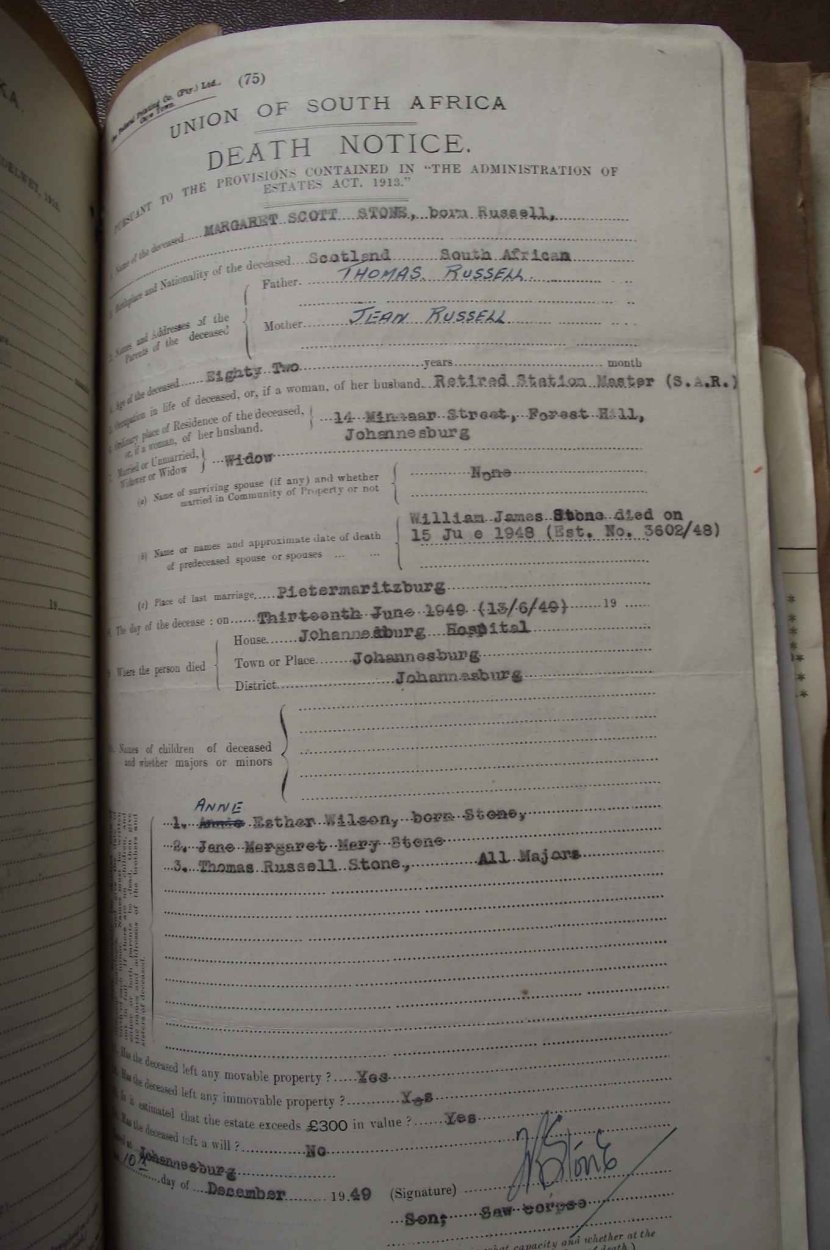 The Federal Printing Co. (Pty.) Ltd., (75)
Cape Town.
UNION OF SOUTH AFRICA
DEATH NOTICE.
PURSUANT TO THE PROVISIONS CONTAINED IN "THE ADMINISTRATION OF
ESTATES ACT, 1913."
Name of the deceased MARGARET SCOTT STONE, born Russell,
Birthplace and Nationality of the deceased Scotland South African
Names and Addresses of the Parents of the deceased
Father THOMAS RUSSELL
Mother JEAN RUSSELL
Age of the deceased Eighty Two years month
Occupation in life of deceased, or, if a woman, of her husband Retired Station Master (S.A.R.)
Ordinary place of Residence of the deceased, 14 Street, Forest Hill,
or, if a woman, of her husband. Johannesburg
Married or Unmarried,
Widower or Widow Widow
(a) Name of surviving spouse (if any) and whether None
married in Community of Property or not
William James Stone died on
(b) Name or names and approximate date of death 15 Ju e 1948 (Est. No. 3602/48)
of predeceased spouse or spouses ... ...
(c) Place of last marriage, Pietermaritzburg
The day of the decease: on Thirteenth June 1949 (13/6/49) 19
Where the person died
House Johannesburg Hospital
Town or Place Johannesburg
District Johannesburg
Names of children of deceased
and whether majors or minors
ANNE
1. Esther Wilson, born Stone,
2. Jane Margaret Mary Stone
3. Thomas Russell Stone, All Majors
sisters of deceased.
Has the deceased left any movable property? Yes
Has the deceased left any immovable property? Yes
Is it estimated that the estate exceeds £300 in value? Yes
Has the deceased left a will? No
Dated at Johannesburg
10 day of December 19 49 (Signature) Stone
Son; Saw corpse
what capacity and whether at the